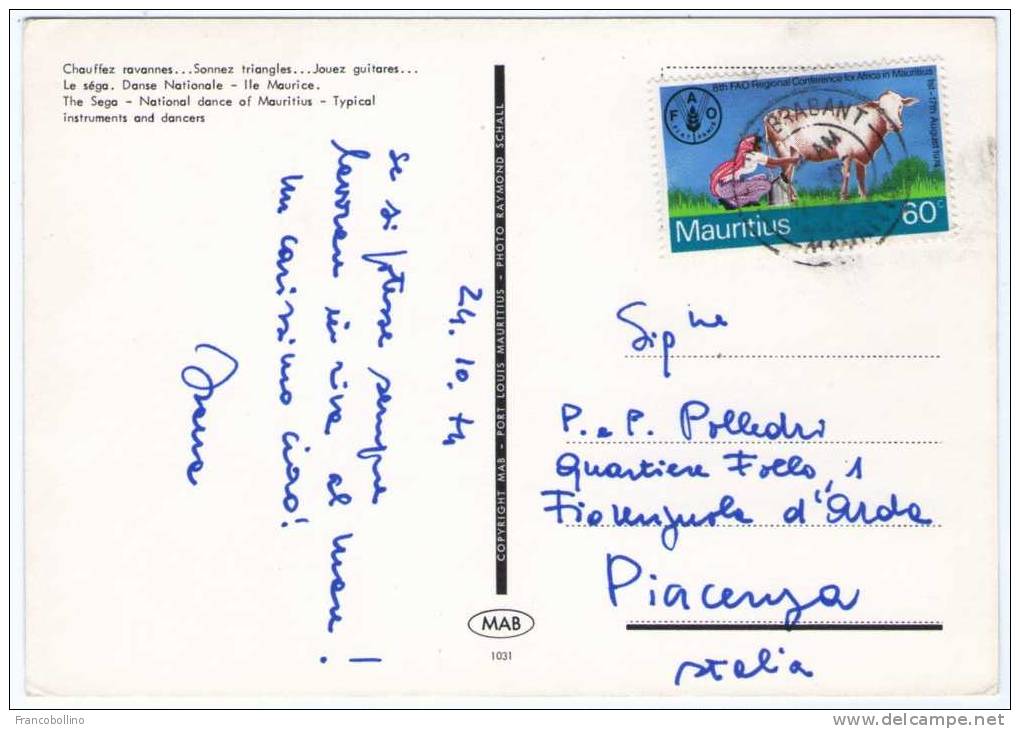 Chauffez ravannes...Sonnez triangles...Jouez guitares...
Le séga. Danse Nationale - Ile Maurice.
The Sega - National dance of Mauritius - Typical
instruments and dancers
24. 10. 74
se si potesse sempre
lavorare in riva al mare!
Un carissimo ciao!
COPYRIGHT MAB - PORT LOUIS MAURITIUS - PHOTO RAYMOND SCHALL
MAB
1031
8th FAO Regional Conference for Africa in Mauritius
1st - 17th August 1974
F A O
FIAT PANIS
BRABANT
AM
Mauritius 60c
Sig.ne
P. e P. Polledri
Quartiere Follo, 1
Fiorenzuola d'Arda
Piacenza
Italia
Francobollino
www.delcampe.net